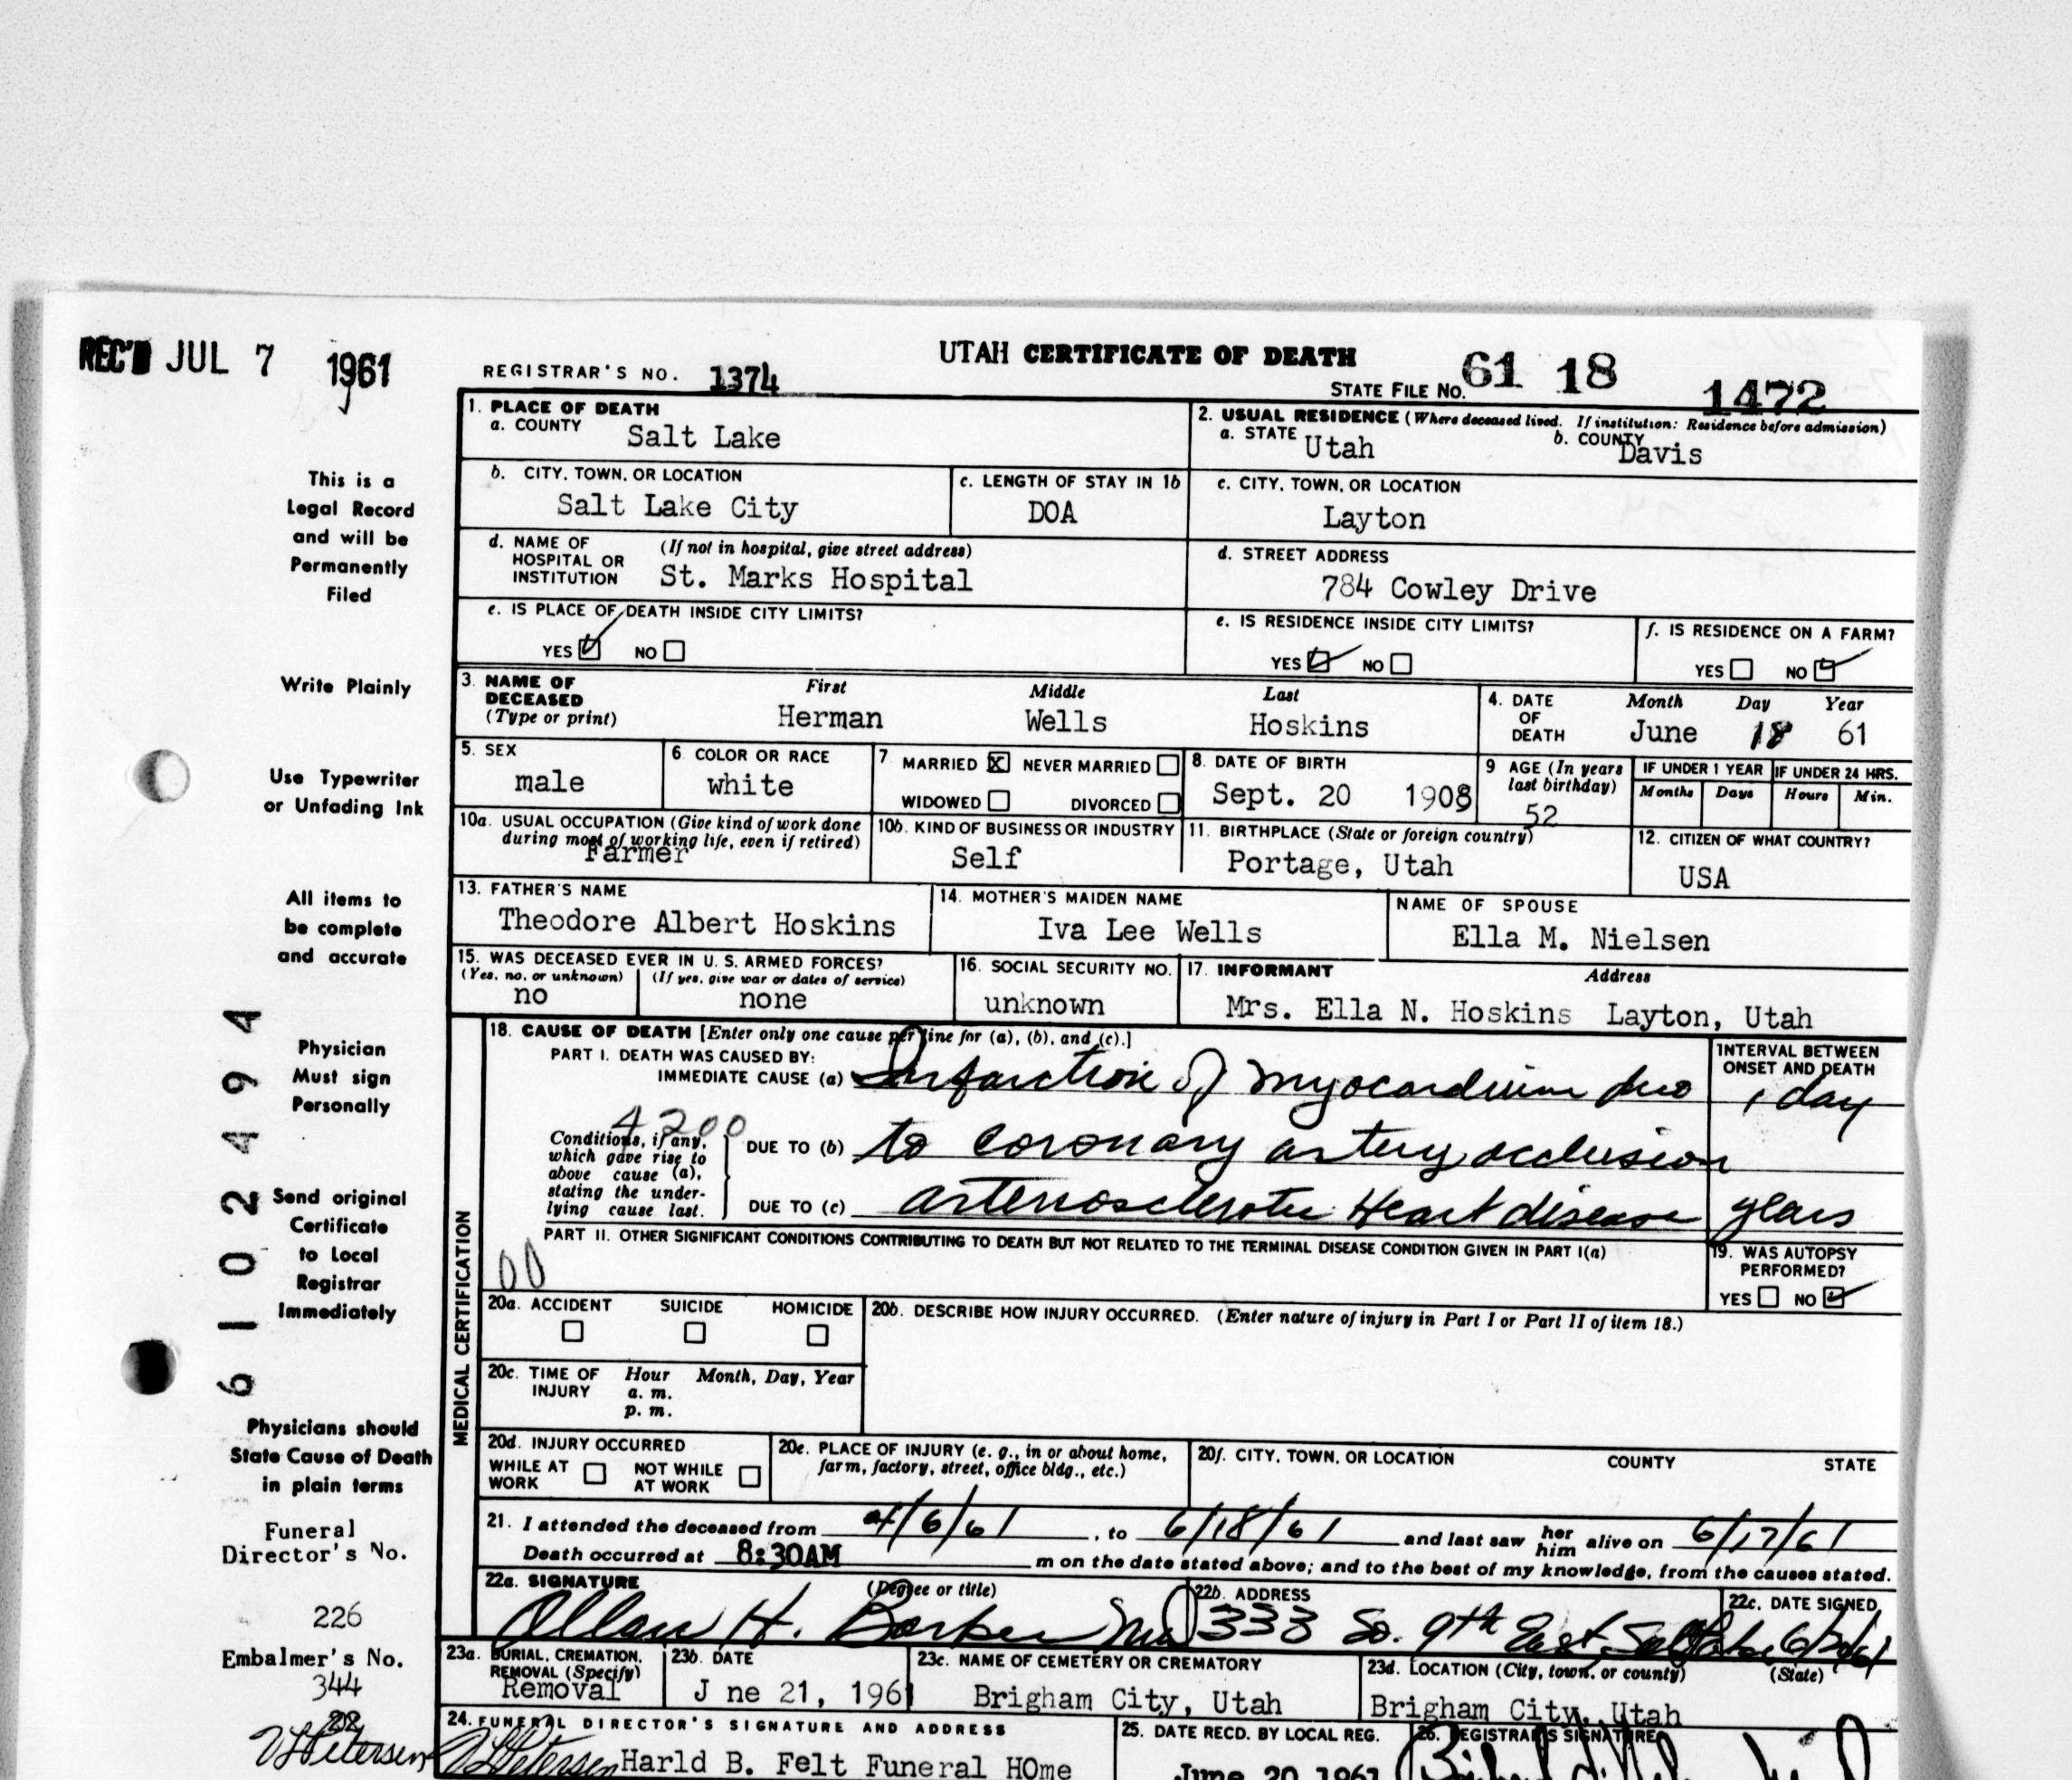 REC'D JUL 7 1961
UTAH CERTIFICATE OF DEATH
REGISTRAR'S NO. 1374
STATE FILE NO. 61 18 1472
This is a
Legal Record
and will be
Permanently
Filed
Write Plainly
Use Typewriter
or Unfading Ink
All items to
be complete
and accurate
Physician
Must sign
Personally
Send original
Certificate
to Local
Registrar
Immediately
Physicians should
State Cause of Death
in plain terms
Funeral
Director's No.
226
Embalmer's No.
344
6102494
1. PLACE OF DEATH
a. COUNTY Salt Lake
2. USUAL RESIDENCE (Where deceased lived. If institution: Residence before admission)
a. STATE Utah b. COUNTY Davis
b. CITY, TOWN, OR LOCATION
Salt Lake City
c. LENGTH OF STAY IN 1b
DOA
c. CITY, TOWN, OR LOCATION
Layton
d. NAME OF HOSPITAL OR INSTITUTION (If not in hospital, give street address)
St. Marks Hospital
d. STREET ADDRESS
784 Cowley Drive
e. IS PLACE OF DEATH INSIDE CITY LIMITS?
YES NO
e. IS RESIDENCE INSIDE CITY LIMITS?
YES NO
f. IS RESIDENCE ON A FARM?
YES NO
3. NAME OF DECEASED (Type or print)
First Middle Last
Herman Wells Hoskins
4. DATE OF DEATH Month Day Year
June 18 61
5. SEX
male
6 COLOR OR RACE
white
7 MARRIED X NEVER MARRIED
WIDOWED DIVORCED
8. DATE OF BIRTH
Sept. 20 1908
9 AGE (In years last birthday)
52
IF UNDER 1 YEAR IF UNDER 24 HRS.
Months Days Hours Min.
10a. USUAL OCCUPATION (Give kind of work done during most of working life, even if retired)
Farmer
10b. KIND OF BUSINESS OR INDUSTRY
Self
11. BIRTHPLACE (State or foreign country)
Portage, Utah
12. CITIZEN OF WHAT COUNTRY?
USA
13. FATHER'S NAME
Theodore Albert Hoskins
14. MOTHER'S MAIDEN NAME
Iva Lee Wells
NAME OF SPOUSE
Ella M. Nielsen
15. WAS DECEASED EVER IN U. S. ARMED FORCES?
(Yes, no, or unknown) (If yes, give war or dates of service)
no none
16. SOCIAL SECURITY NO.
unknown
17. INFORMANT Address
Mrs. Ella N. Hoskins Layton, Utah
MEDICAL CERTIFICATION
18. CAUSE OF DEATH [Enter only one cause per line for (a), (b), and (c).]
PART I. DEATH WAS CAUSED BY:
IMMEDIATE CAUSE (a) Infarction of myocardium due
INTERVAL BETWEEN ONSET AND DEATH
1 day
4200
Conditions, if any, which gave rise to above cause (a), stating the underlying cause last.
DUE TO (b) to coronary artery occlusion
DUE TO (c) arteriosclerotic Heart disease years
PART II. OTHER SIGNIFICANT CONDITIONS CONTRIBUTING TO DEATH BUT NOT RELATED TO THE TERMINAL DISEASE CONDITION GIVEN IN PART I(a)
00
19. WAS AUTOPSY PERFORMED?
YES NO
20a. ACCIDENT SUICIDE HOMICIDE
20b. DESCRIBE HOW INJURY OCCURRED. (Enter nature of injury in Part I or Part II of item 18.)
20c. TIME OF INJURY Hour Month, Day, Year
a. m.
p. m.
20d. INJURY OCCURRED
WHILE AT WORK NOT WHILE AT WORK
20e. PLACE OF INJURY (e. g., in or about home, farm, factory, street, office bldg., etc.)
20f. CITY, TOWN, OR LOCATION COUNTY STATE
21. I attended the deceased from 4/6/61, to 6/18/61 and last saw her him alive on 6/17/61
Death occurred at 8:30AM m on the date stated above; and to the best of my knowledge, from the causes stated.
22a. SIGNATURE (Degree or title)
Allan H. Barker MD
22b. ADDRESS
333 So. 9th East, Salt Lake
22c. DATE SIGNED
23a. BURIAL, CREMATION, REMOVAL (Specify)
Removal
23b. DATE
J ne 21, 1961
23c. NAME OF CEMETERY OR CREMATORY
Brigham City, Utah
23d. LOCATION (City, town, or county) (State)
Brigham City, Utah
24. FUNERAL DIRECTOR'S SIGNATURE AND ADDRESS
Harld B. Felt Funeral HOme
25. DATE RECD. BY LOCAL REG.
June 20 1961
26. REGISTRAR'S SIGNATURE